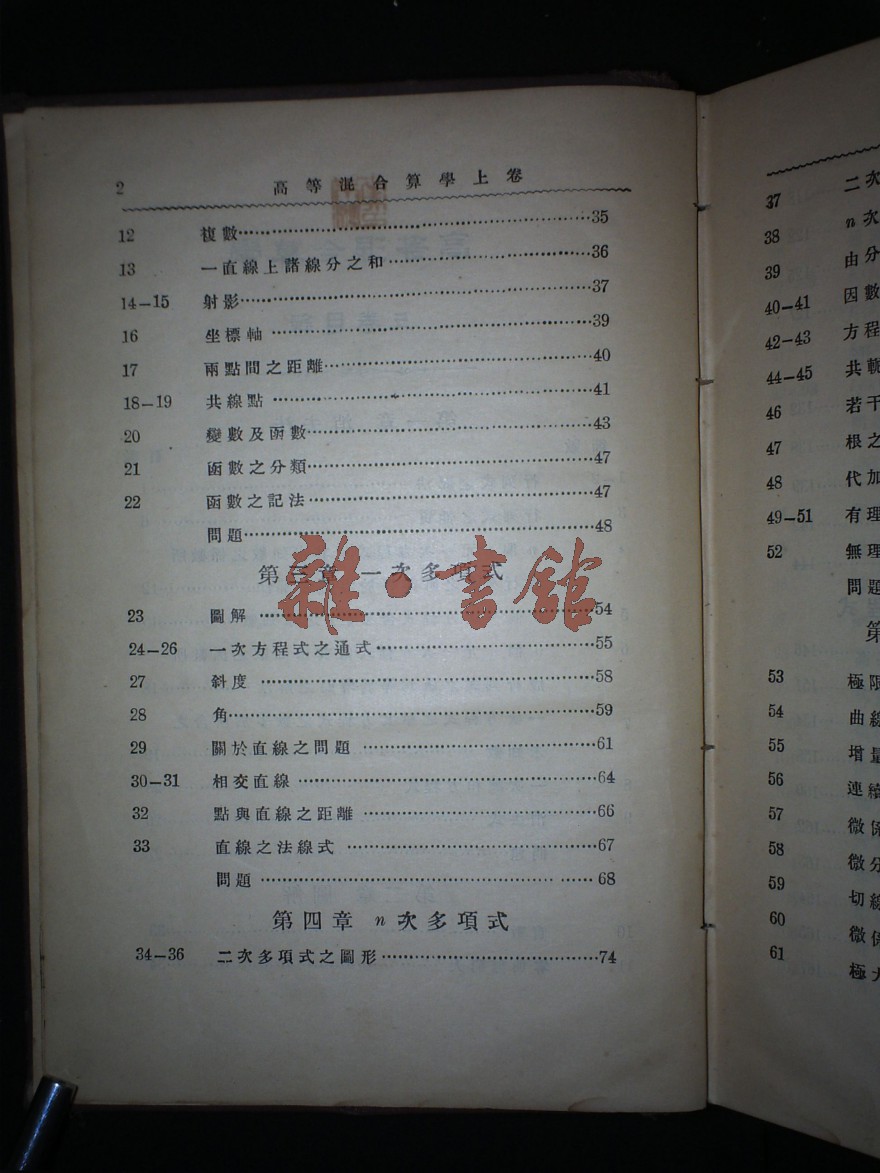 2 高等混合算學上卷
12 複數 35
13 一直線上諸線分之和 36
14—15 射影 37
16 坐標軸 39
17 兩點間之距離 40
18—19 共線點 41
20 變數及函數 43
21 函數之分類 47
22 函數之記法 47
問題 48
第三章 一次多項式
23 圖解 54
24—26 一次方程式之通式 55
27 斜度 58
28 角 59
29 關於直線之問題 61
30—31 相交直線 64
32 點與直線之距離 66
33 直線之法線式 67
問題 68
第四章 n次多項式
34—36 二次多項式之圖形 74
雜·書館
37 二次
38 n次
39 由分
40—41 因數
42—43 方程
44—45 共軛
46 若干
47 根之
48 代加
49—51 有理
52 無理
問題
第
53 極限
54 曲線
55 增量
56 連續
57 微係
58 微分
59 切線
60 微係
61 極大